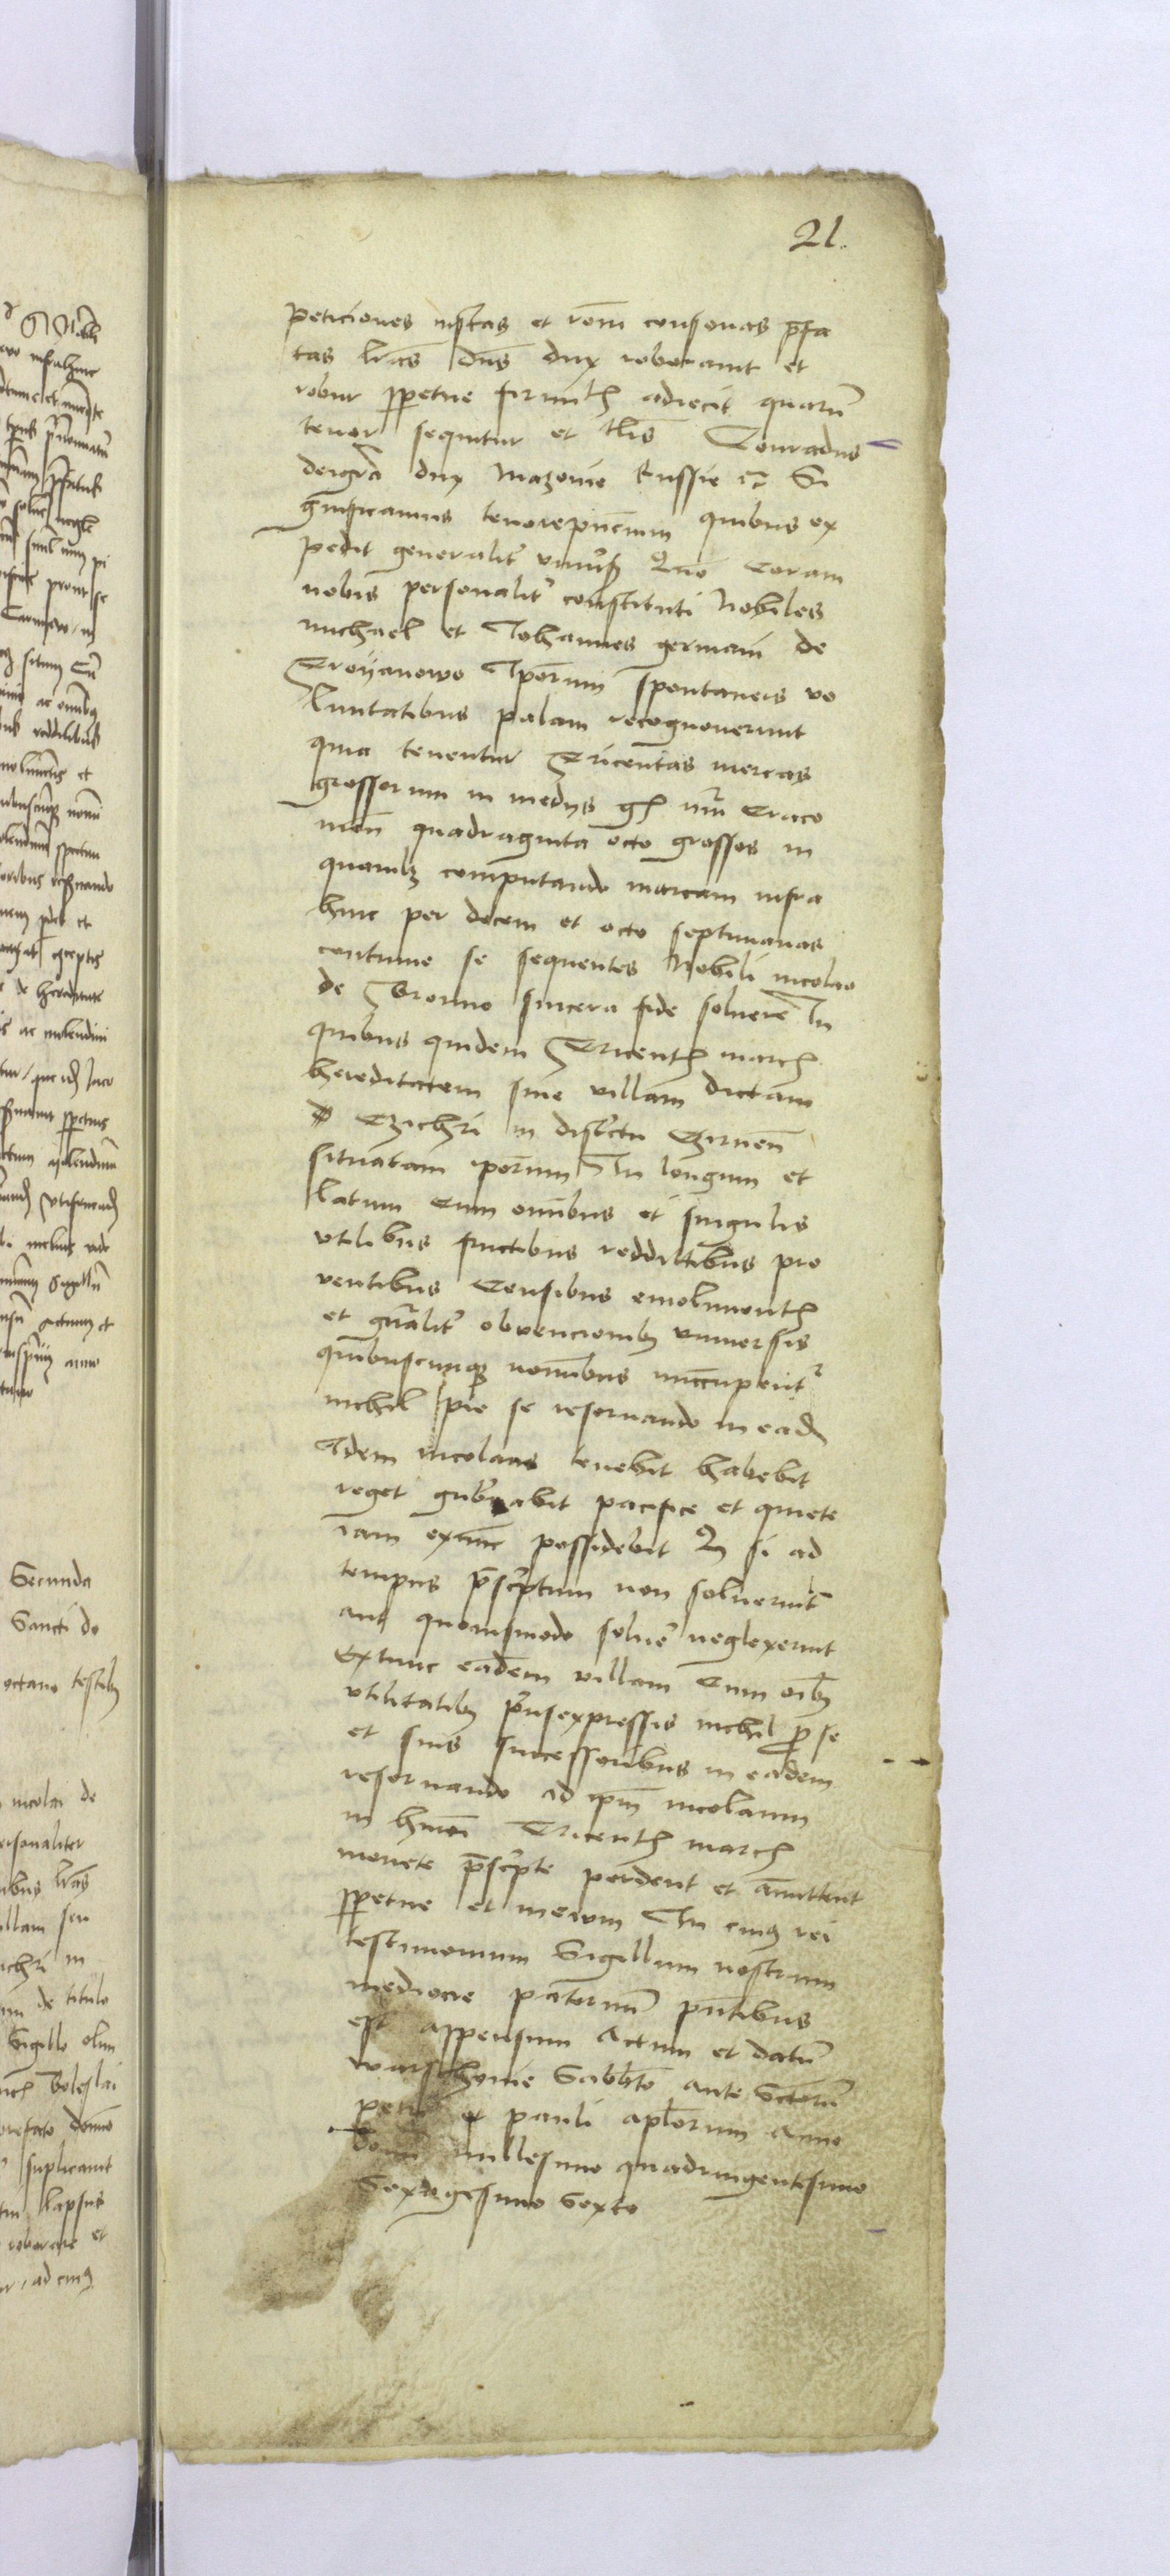 21.
peticiones iustas et roni consonas prefa
tas lras dns dux roborauit et
robur ppetue firmitatis adiecit quarum
tenor sequitur et est tlis Conradus
deigra dux Mazouie Russie etc Si
gnificamus tenorepncium quibus ex
pedit generaliter vniuersis Quo Coram
nobis personaliter constituti Nobiles
michael et Johannes germani de
Troyanowo Iporum spontaneis vo
luntatibus palam recognouerunt
quia tenentur Tricentas mercas
grossorum in medys gr nri Craco
mon quadraginta octo grossos in
quamlibet computando marcam infra
hinc per decem et octo septimanas
continue se sequentes Nobili nicolao
de Bromo sincera fide soluere In
quibus quidem Tricentis marcis
hereditatem siue villam dictam
Czichri in districtu Czirnen
situatam iporum In longum et
latum Cum omnibus et singulis
vtilibus fructibus reddittibus pro
ventibus Censibus emolimentis
et gnraliter obuencionibus vniuersis
quibuscumque nominibus nuncupentur
nichil pro se reseruando in eadem
Idem nicolaus tenebit habebit
reget gubernabit pacifice et quiete
iam extunc possidebit Et si ad
tempus prescriptum non soluerint
aut quouismodo soluere neglexerint
Extunc eadem villam Cum oibus
vtilitatibus prius expressis nichil pro se
et suis successoribus in eadem
reseruando ad ipm nicolaum
in hmoi Tricentis marcis
monete prescripte perdent et amittent
ppetue et in ewm In cuius rei
testimonium Sigillum nostrum
mediocre paternum pntibus
est appensum Actum et datum
warschouie Sabbato ante Sctorum
petri et pauli aplorum Anno
domini millesimo quadringentesimo
Sexagesimo Sexto
Secunda
Sancti do
octauo testibus
nicolai de
ersonaliter
ibus lras
illam seu
ichri in
de titulo
Sigillo olim
Boleslai
prefato domino
suplicauit
lapsus
roborare et
ad cuius